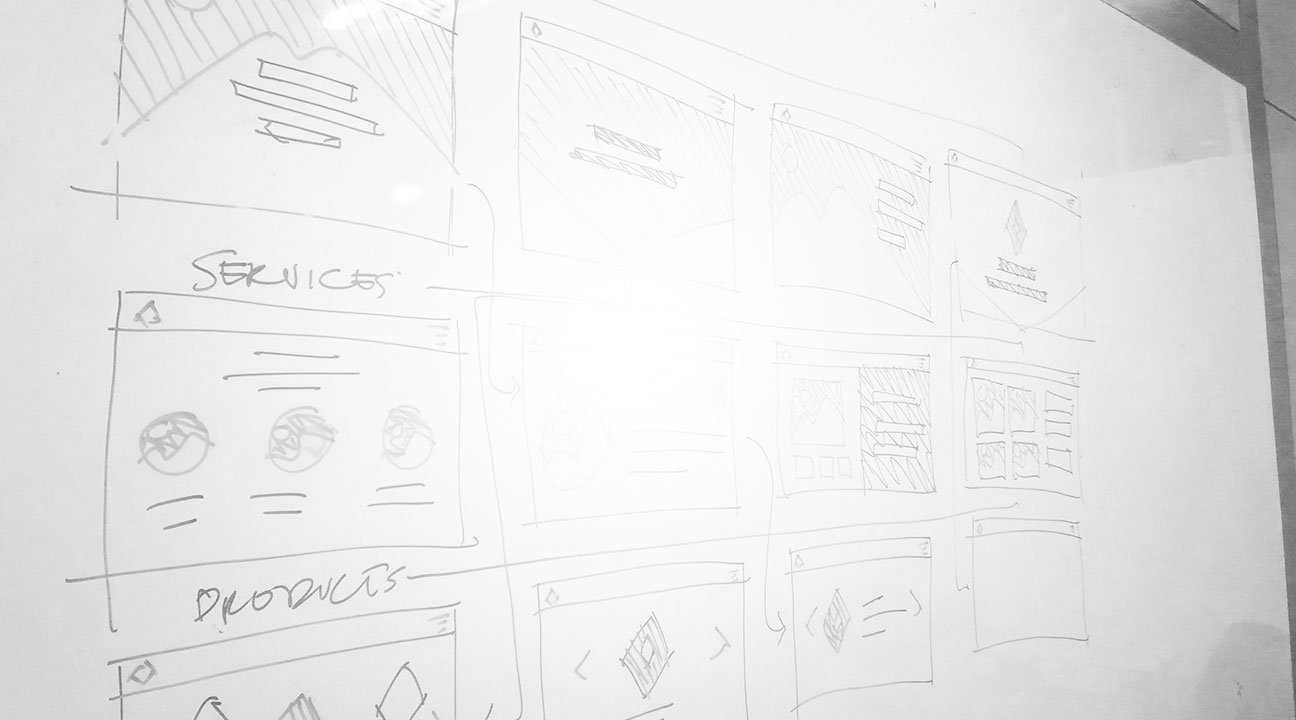 SERVICES
PRODUCTS